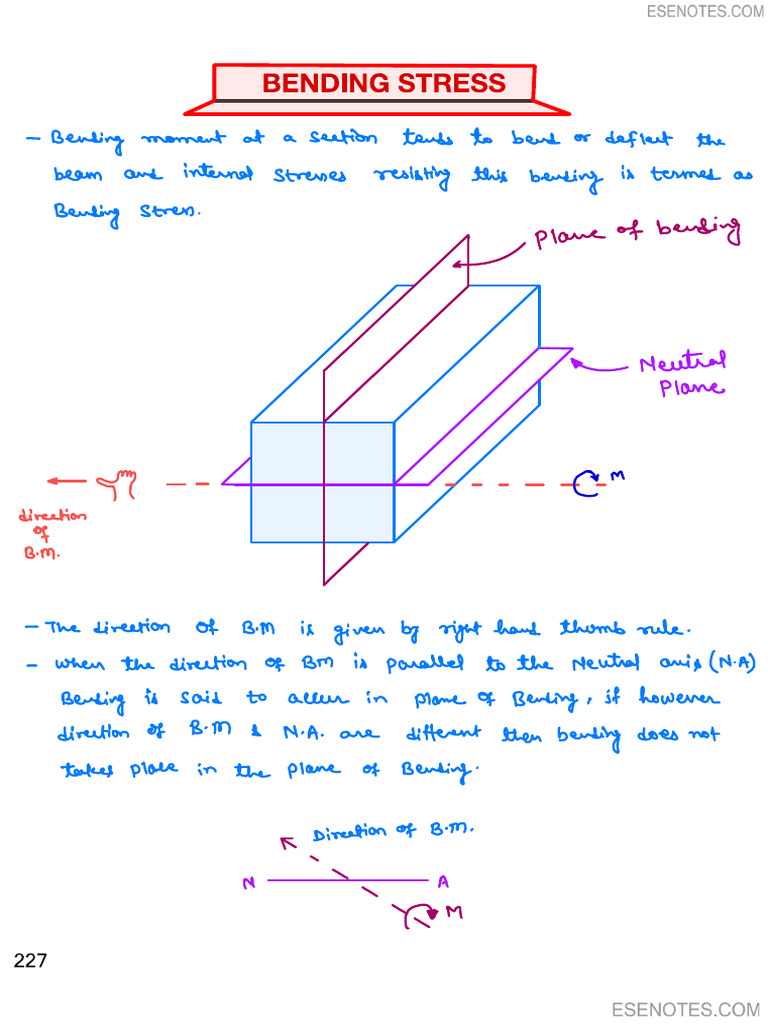 ESENOTES.COM
BENDING STRESS
- Bending moment at a section tends to bend or deflect the
beam and internal stresses resisting this bending is termed as
Bending Stress.
Plane of bending
Neutral
Plane
M
direction
of
B.M.
- The direction of B.M is given by right hand thumb rule.
- When the direction of BM is parallel to the Neutral axis (N.A)
Bending is said to occur in plane of Bending, if however
direction of B.M & N.A. are different then bending does not
takes place in the plane of Bending.
Direction of B.M.
N A
M
227
ESENOTES.COM